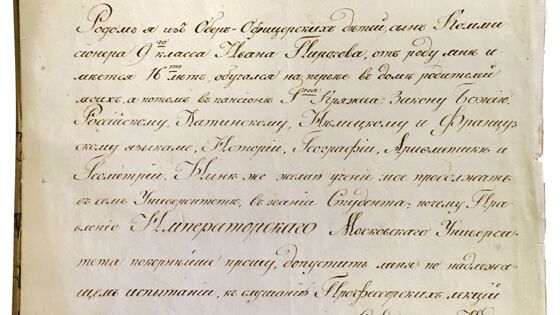 Родомъ я изъ Оберъ-Офицерскихъ дѣтей, сынъ Комми
сіонера 9го класса Ивана Пирогова, отъ роду мнѣ и
мѣется 16ть лѣтъ, обучался на передъ въ домѣ родителей
моихъ, а потомъ въ пансіонѣ Гна Кряжева: Закону Божію,
Россійскому, Латинскому, Нѣмецкому и Француз
скому языкамъ, Исторіи, Географіи, Ариѳметикѣ и
Геометріи. Нынѣ же желаю ученіе мое продолжать
въ семъ Университетѣ, въ званіи Студента; почему Пра
вленіе Императорскаго Московскаго Универси
тета покорнѣйше прошу, допустить меня по надлежа
щемъ испытаніи, къ слушанію Профессорскихъ лекцій